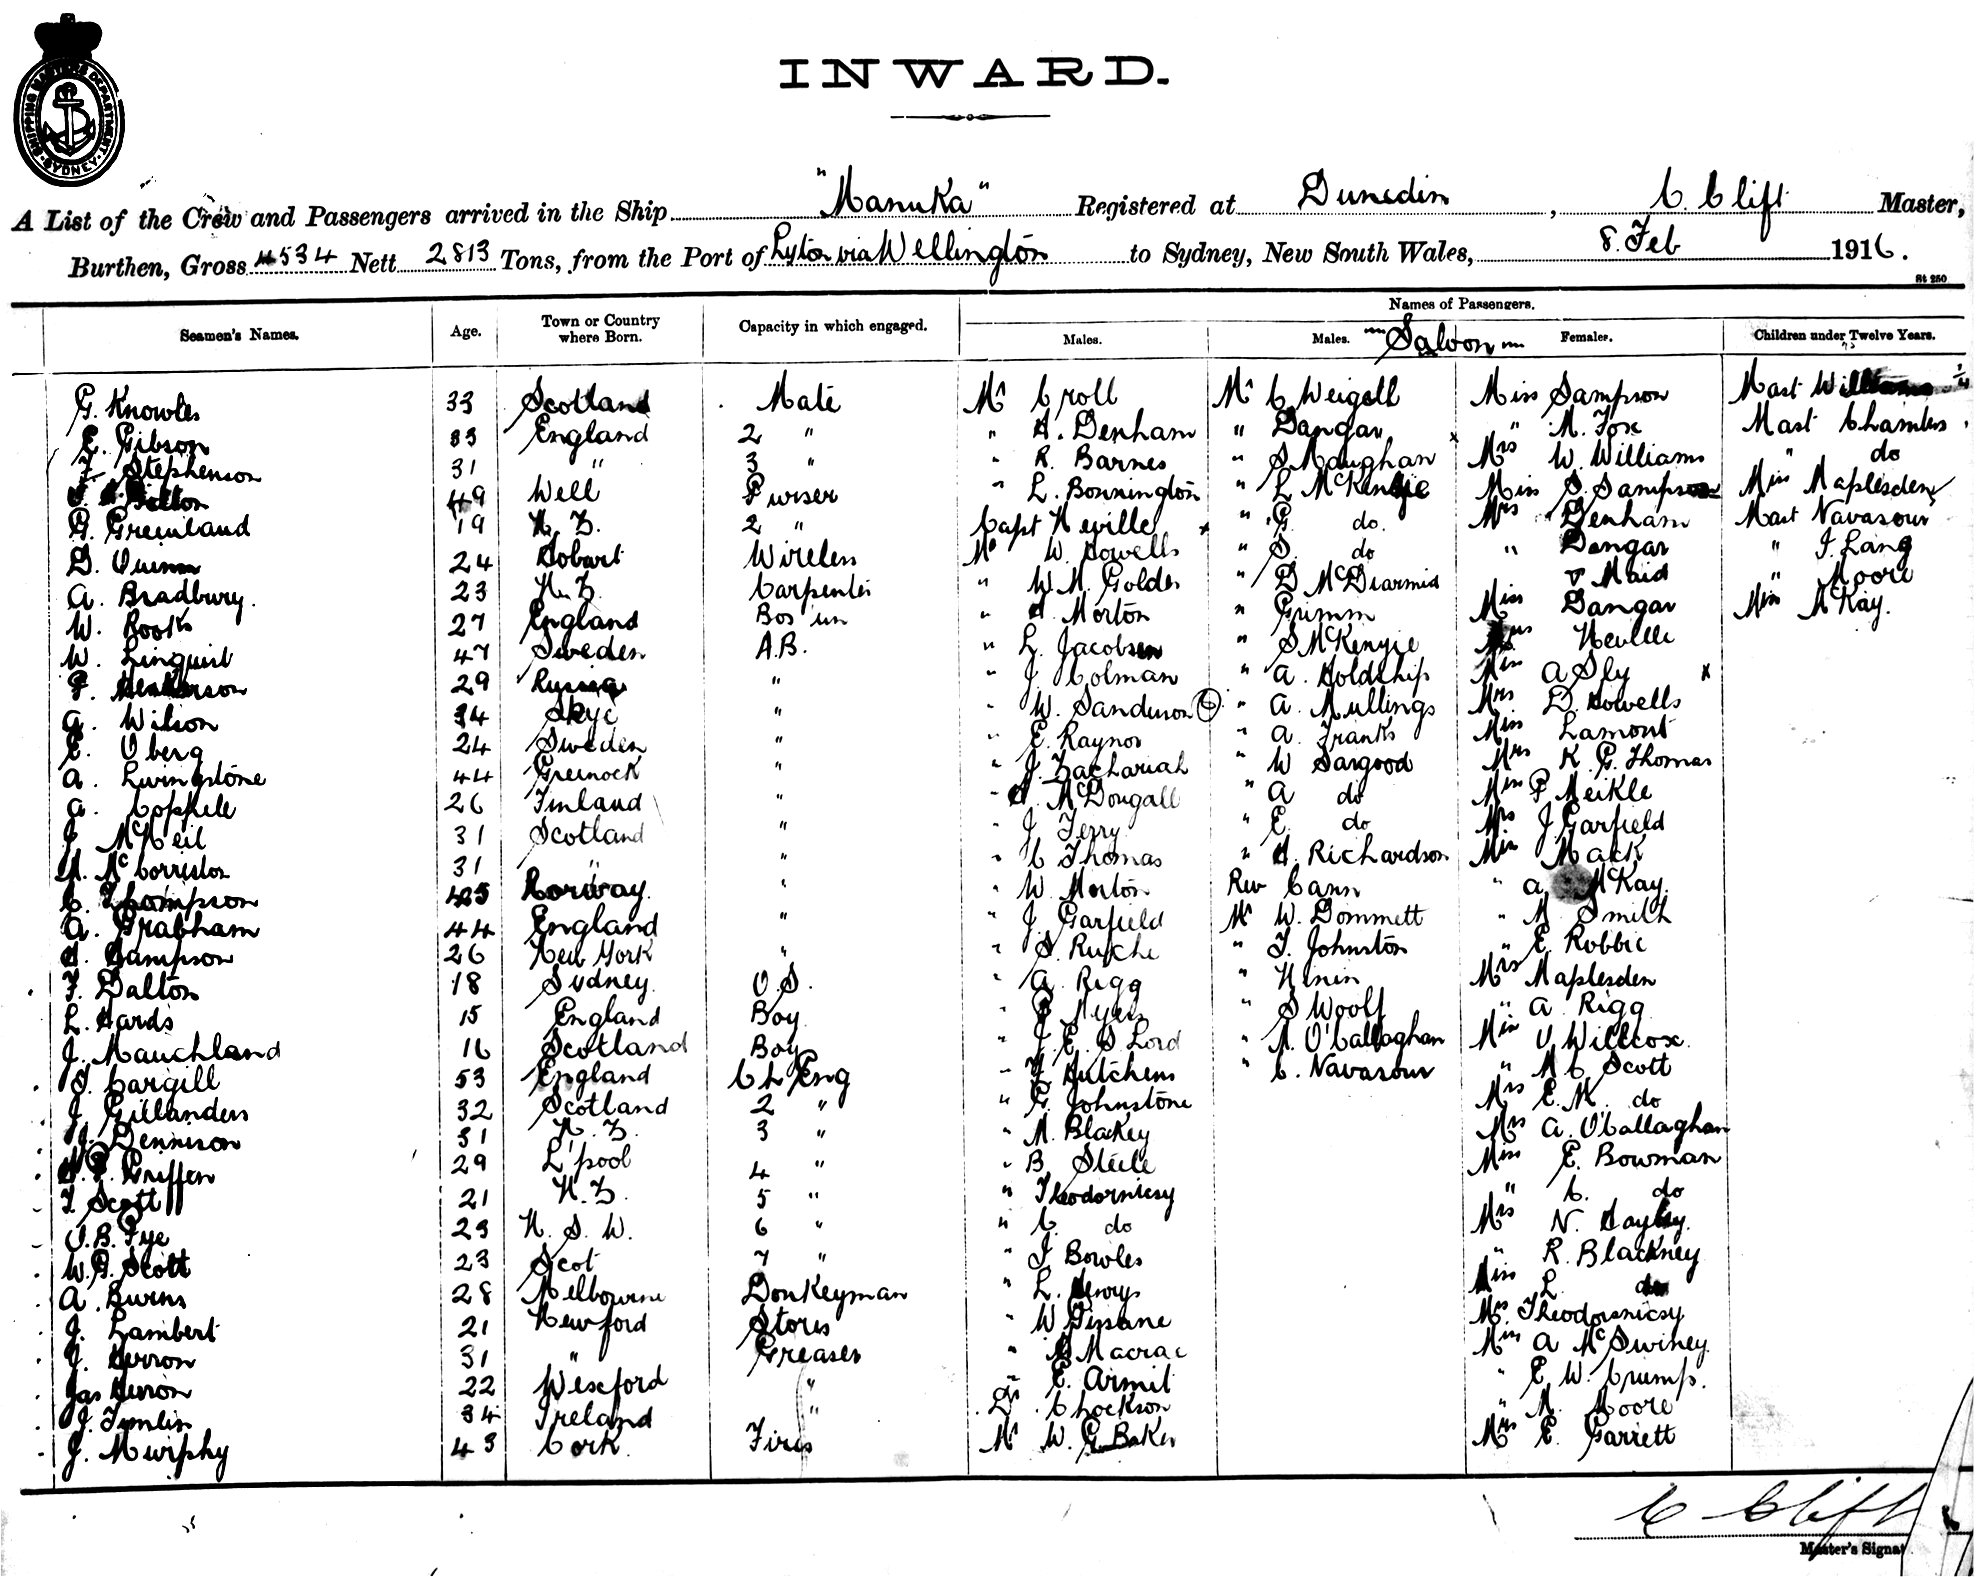 SHIPPING MASTERS DEPARTMENT SYDNEY
INWARD.
A List of the Crew and Passengers arrived in the Ship "Manuka" Registered at Dunedin, C. Clift Master,
Burthen, Gross 4534 Nett 2813 Tons, from the Port of Lyton via Wellington to Sydney, New South Wales, 8. Feb 1916.
St 250
Names of Passengers.
Seamen's Names. Age. Town or Country where Born. Capacity in which engaged. Males. Males. Saloon Females. Children under Twelve Years.
G. Knowles 33 Scotland Mate Mr Croll Mr C Weigall Miss Sampson Mast
E. Gibson 33 England 2 " " H. Denham " Dangar " M. Fox Mast Chambers
F. Stephenson 31 " 3 " " R. Barnes " S Maughan Mrs W. Williams " do
49 Well Purser " L. Bonnington " L McKenzie Miss S. Sampson Miss Maplesden
G. Greenland 19 N. Z. 2 " Capt Neville " G. do. Mrs Denham Mast Navasour
D. Quinn 24 Hobart Wireless Mr W. Howells " S. do " Dangar " J. Lang
A. Bradbury. 23 N. Z. Carpenter " W. M. Golder " D McDiarmid & Maid " Moore
W. Rooks 27 England Bos'un " H. Morton " Grimm Miss Dangar Miss McKay.
W. Linquist 47 Sweden A.B. " L. Jacobsen " S McKenzie Neville
29 Russia " " J Colman " A. Holdship Miss A Sly x
A. Wilson 34 Skye " " W. Sanderson " A. Mullings Mrs D. Howells
E. Oberg 24 Sweden " " E. Raynor " A. Franks Miss Lamont
A. Livingstone 44 Greenock " " J. Zachariah " W Sargood Mrs K. G. Thomas
A. Cophele 26 Finland " " H. McDougall " A do Miss P Meikle
J. McNeil 31 Scotland " " J Ferry " E. do Mrs J Garfield
M. McCorriston 31 " " " C Thomas " H. Richardson Miss Mack
C. Thompson 45 Norway. " " W. Morton Rev Cann " A McKay.
A. Brabham 44 England " " J. Garfield Mr W. Dommett " M Smith
H. Sampson 26 New York " " S. Ruche " T. Johnston " E Robbie
F. Dalton 18 Sydney. O.S. " A. Rigg " Ninin Mrs Maplesden
L. Hards 15 England Boy " P Myers " S Woolf " A Rigg
J. Mauchland 16 Scotland Boy " J. E. S Lord " M. O'Callaghan Miss V Willcox.
J. Cargill 53 England Ch Eng " F Hutchens " C. Navasour " M C Scott
J Gillanders 32 Scotland 2 " " G. Johnstone Mrs E. M. do
J. Dennison 31 N. Z. 3 " " M. Blakey Mrs A. O'Callaghan
H. P. Griffen 29 L'pool 4 " " B Steele Miss E. Bowman
T Scott 21 N. Z. 5 " " Theodornicsy " C. do
O. B. Pye 23 N. S. W. 6 " " C. do Mrs N. Hayley.
W. G. Scott 23 Scot 7 " " J Bowles " R. Blackney
A. Burns 28 Melbourne Donkeyman " L. Henrys Miss L do
J. Lambert 21 Newford Stores " W Gissane Mrs Theodornicsy
J. Herron 31 " Greaser " Macrae Miss A McSwiney.
Jas Herron 22 Wexford " " E. Armit " E W. Crump.
J. Tomlin 34 Ireland " Dr Clockson " M. Moore
J. Murphy 43 Cork. Fires Mr W. G. Baker Mrs E. Garrett
C Clift
Master's Signat